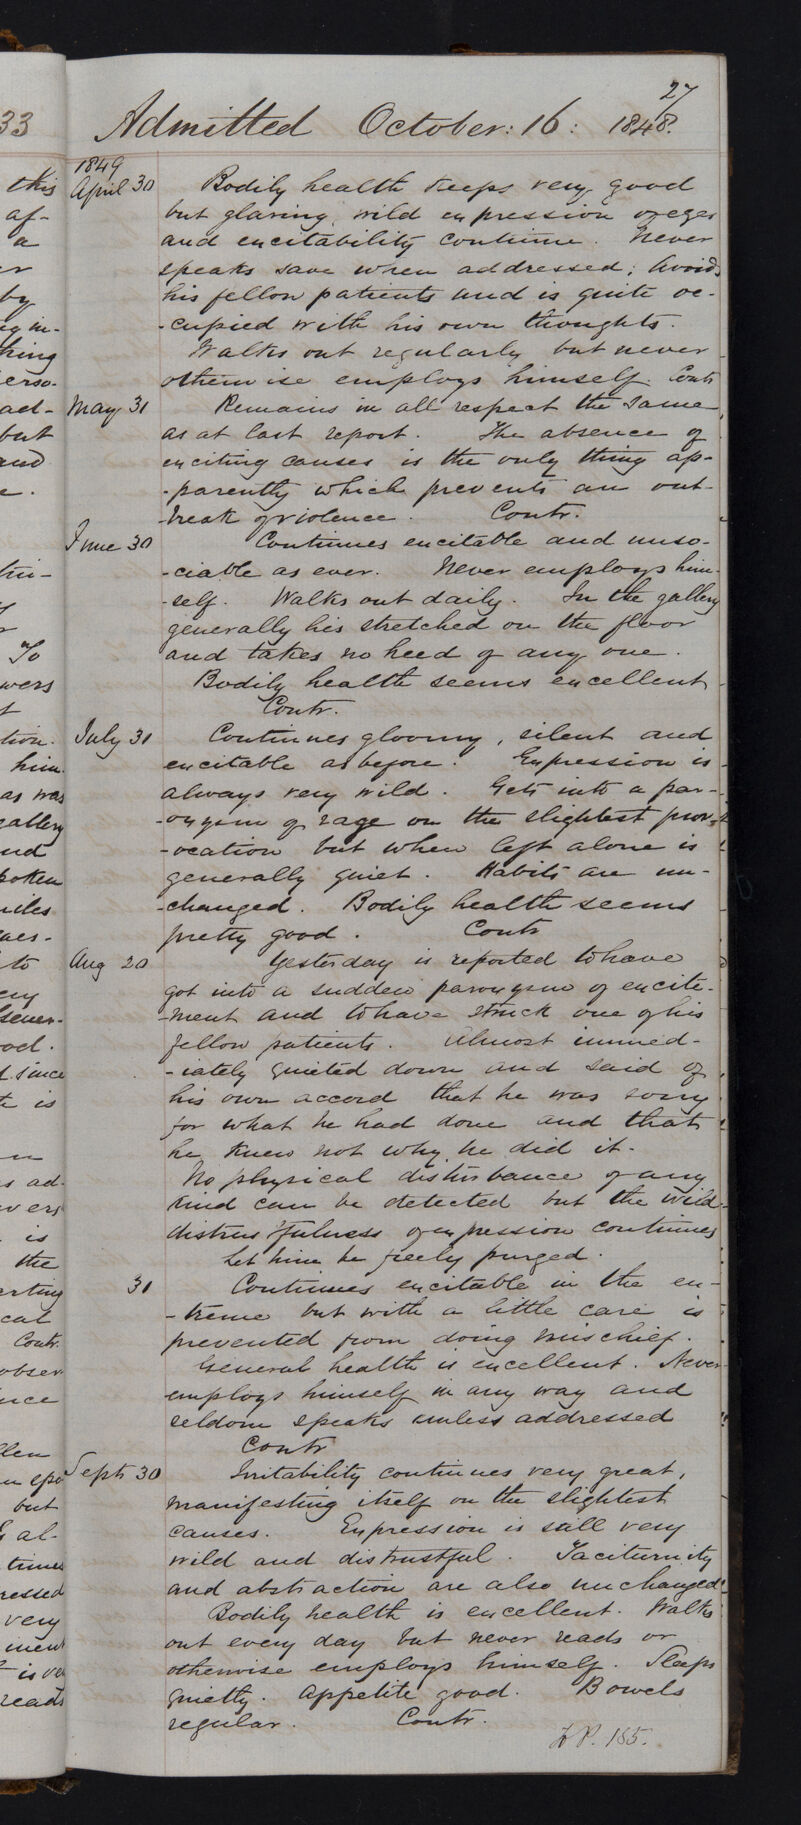 27
Admitted October: 16: 1848.
1849
April 30 Bodily health keeps very good
but glaring, wild expression of eyes
and excitability continue. Never
speaks save when addressed; Avoids
his fellow patients and is quite oc-
-cupied with his own thoughts.
Walks out regularly but never
otherwise employs himself. Contr
May 31 Remains in all respect the same
as at last report. The absence of
exciting causes is the only thing ap-
-parently which prevents an out-
-break of violence. Contr.
June 30 Continues excitable and unso-
-ciable as ever. Never employs him-
-self. Walks out daily. In the gallery
generally lies stretched on the floor
and takes no heed of any one.
Bodily health seems excellent
Contr.
July 31 Continues gloomy, silent and
excitable as before. Expression is
always very wild. Gets into a par-
-oxysm of rage on the slightest prov-
-ocation but when left alone is
generally quiet. Habits are un-
-changed. Bodily health seems
pretty good. Contr
Aug 20 Yesterday is reported to have
got into a sudden paroxysm of excite-
-ment and to have struck one of his
fellow patients. Almost immed-
-iately quieted down and said of
his own accord that he was sorry
for what he had done and that
he knew not why he did it.
No physical disturbance of any
kind can be detected but the wild
distrustfulness of expression continues
Let him be freely purged.
31 Continues excitable in the ex-
-treme but with a little care is
prevented from doing mischief.
General health is excellent. Never
employs himself in any way and
seldom speaks unless addressed
Contr
Sept 30 Irritability continues very great,
manifesting itself on the slightest
causes. Expression is still very
wild and distrustful. Taciturnity
and abstraction are also unchanged
Bodily health is excellent. Walks
out every day but never reads or
otherwise employs himself. Sleeps
quietly. Appetite good. Bowels
regular. Contr.
P. 185.